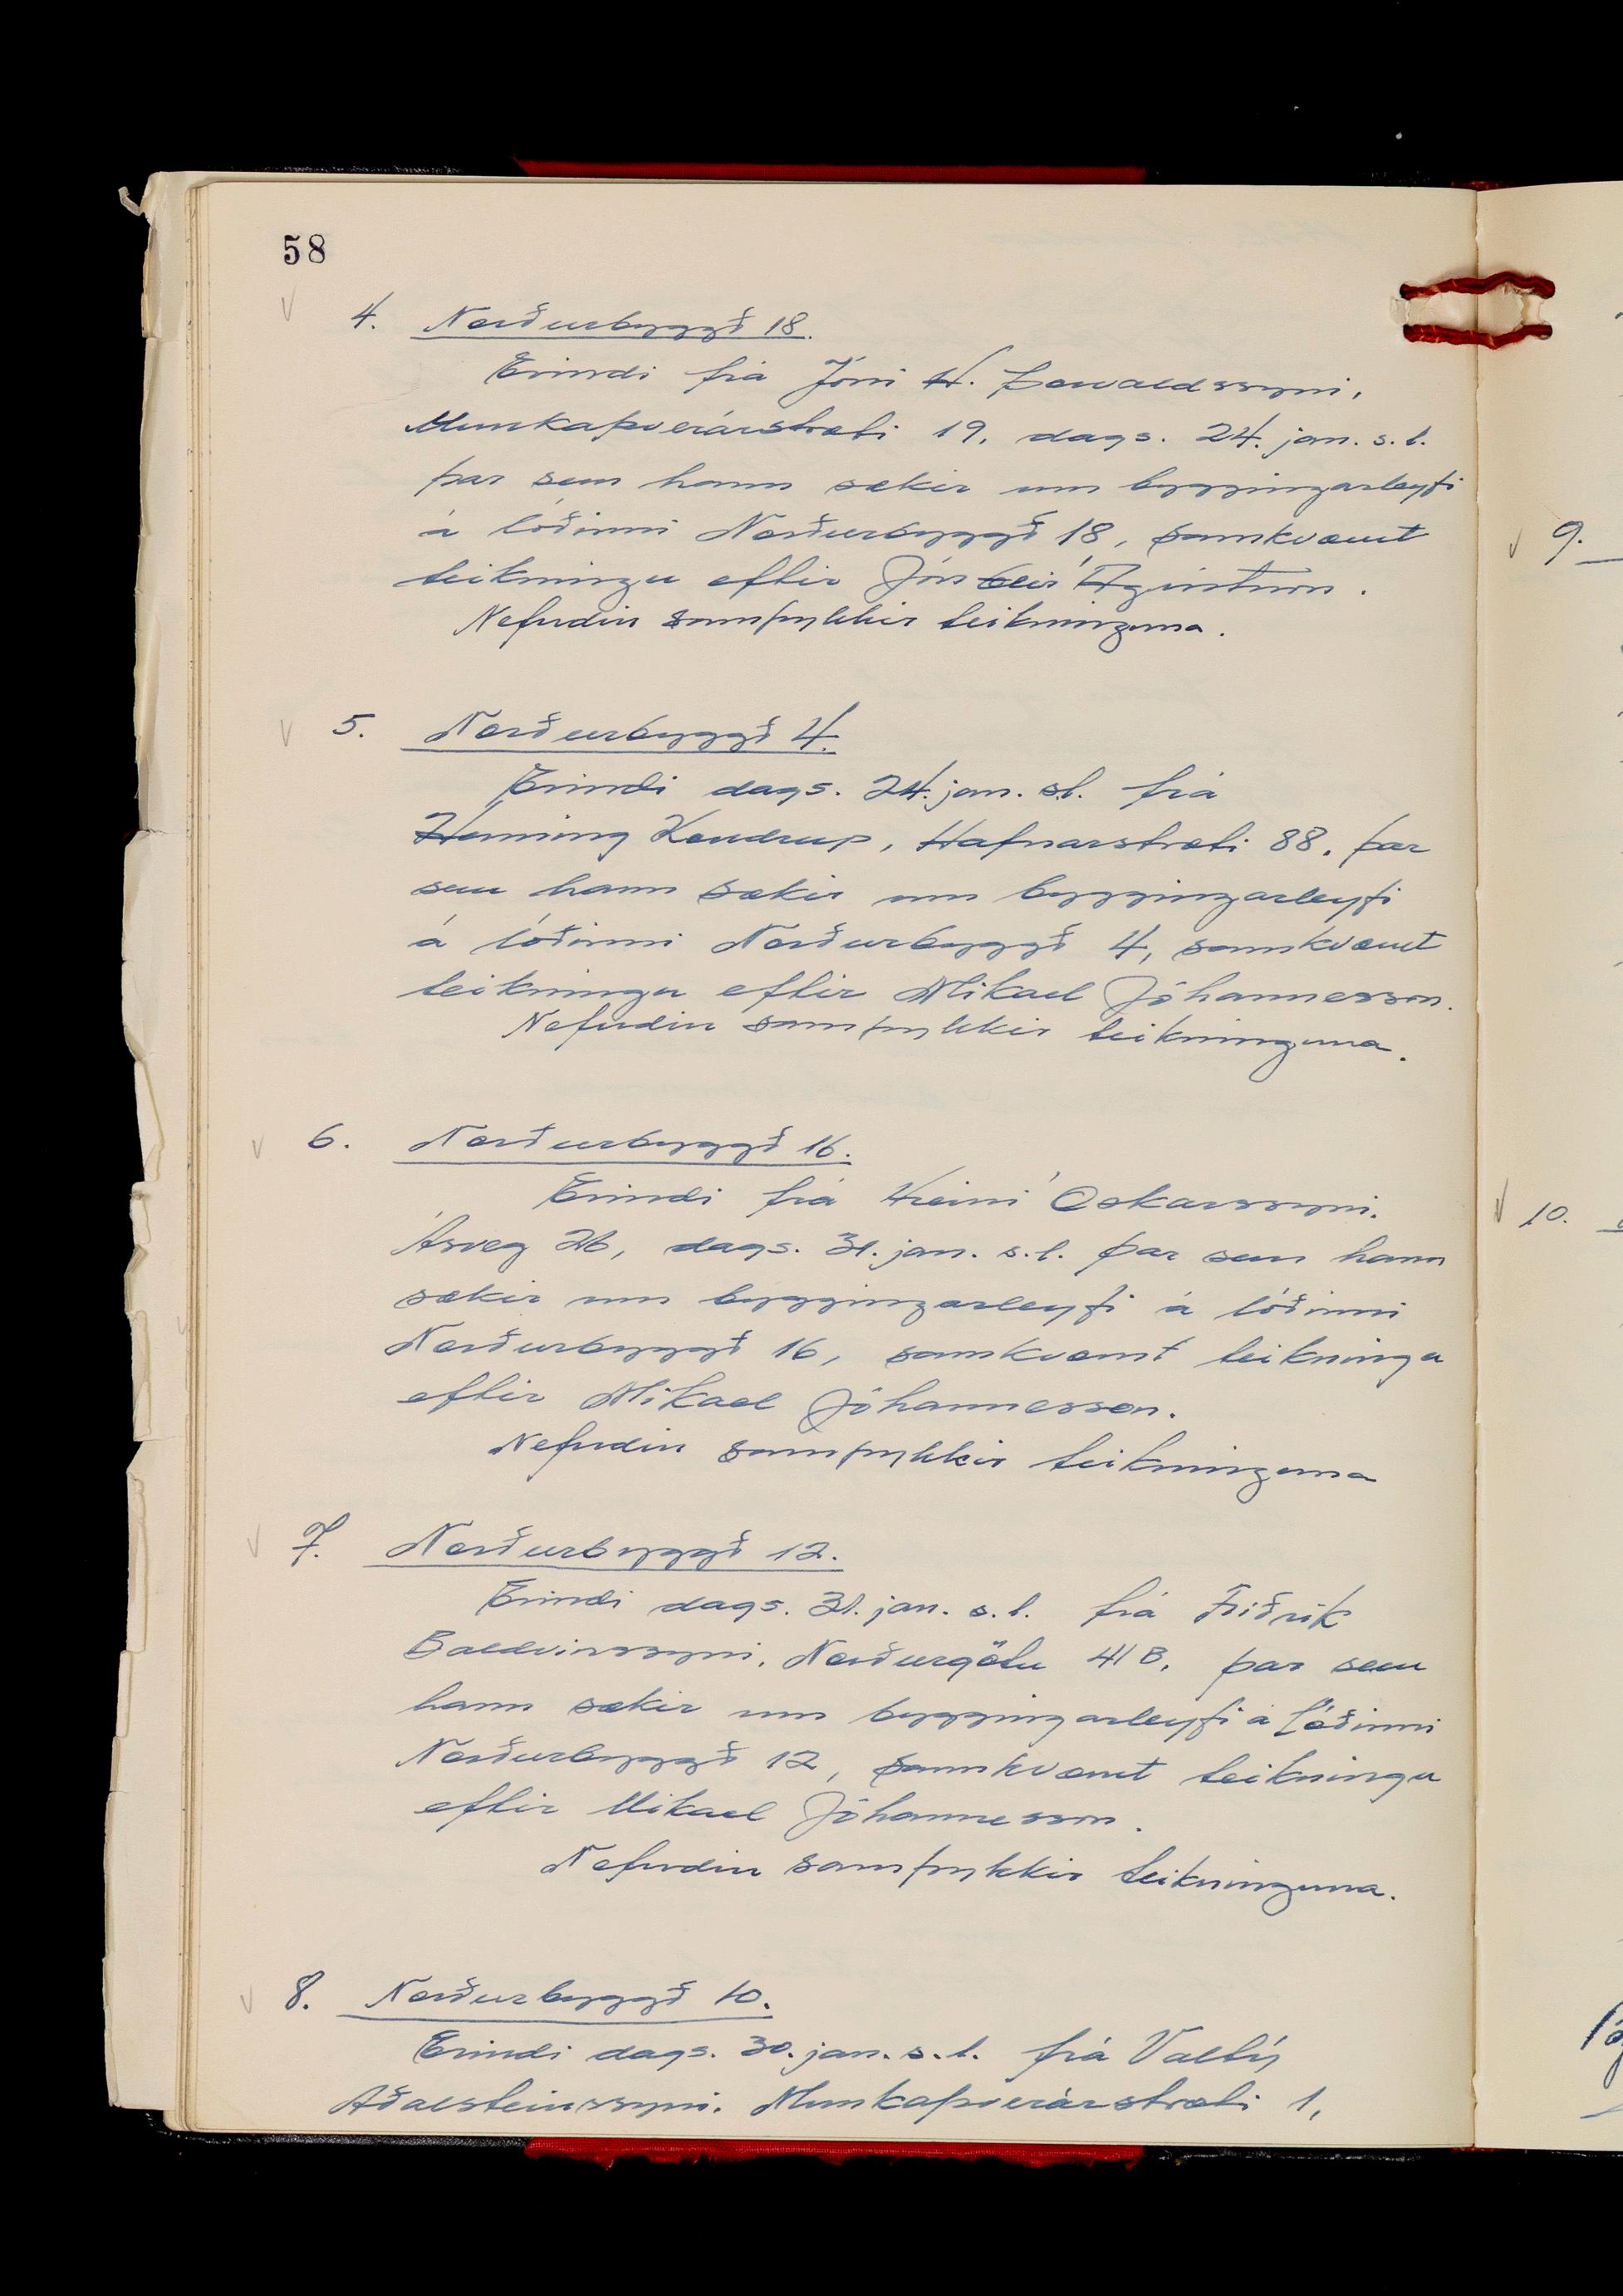 58
4. Norðurbyggð 18.
Erindi frá Jóni H. Þorvaldssyni,
Munkaþverárstræti 19, dags. 24. jan. s.l.
þar sem hann sækir um byggingarleyfi
á lóðinni Norðurbyggð 18, samkvæmt
teikningu eftir Jón Geir Ágústsson.
Nefndin samþykkir teikninguna.
5. Norðurbyggð 4.
Erindi dags. 24. jan. s.l. frá
Henning Kondrup, Hafnarstræti 88, þar
sem hann sækir um byggingarleyfi
á lóðinni Norðurbyggð 4, samkvæmt
teikningu eftir Mikael Jóhannesson.
Nefndin samþykkir teikninguna.
6. Norðurbyggð 16.
Erindi frá Hreini Óskarssyni,
Ásveg 26, dags. 31. jan. s.l. þar sem hann
sækir um byggingarleyfi á lóðinni
Norðurbyggð 16, samkvæmt teikningu
eftir Mikael Jóhannesson.
Nefndin samþykkir teikninguna
7. Norðurbyggð 12.
Erindi dags. 31. jan. s.l. frá Friðrik
Baldvinssyni, Norðurgötu 41B, þar sem
hann sækir um byggingarleyfi á lóðinni
Norðurbyggð 12, samkvæmt teikningu
eftir Mikael Jóhannesson.
Nefndin samþykkir teikninguna.
8. Norðurbyggð 10.
Erindi dags. 30. jan. s.l. frá Valtý
Aðalsteinssyni, Munkaþverárstræti 1,
9.
10.